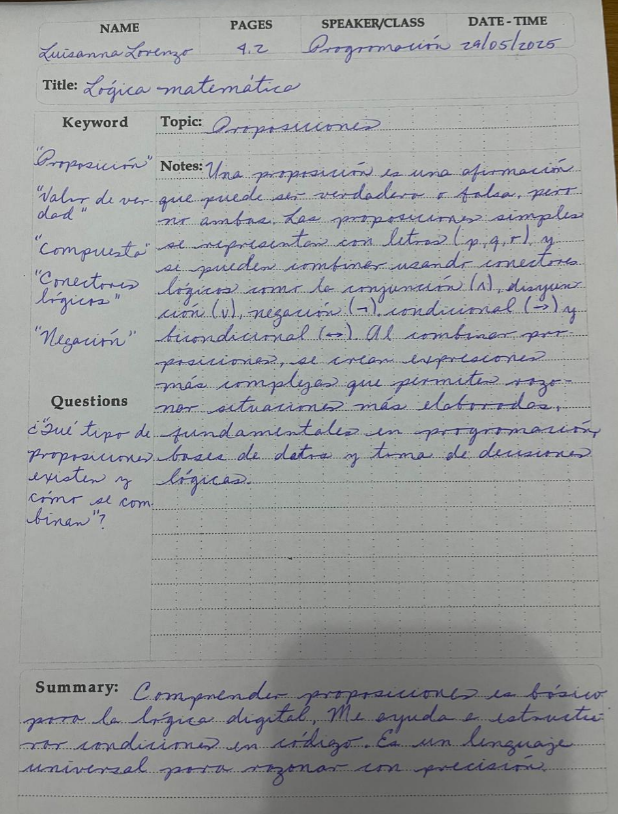 NAME PAGES SPEAKER/CLASS DATE - TIME
Luisanna Lorenzo 4.2 Programación 29/05/2025
Title: Lógica matemática
Keyword
"Proposición"
"Valor de ver
dad"
"Compuesta"
"Conectores
lógicos"
"Negación"
Questions
¿"Qué tipo de
proposiciones
existen y
cómo se com
binan"?
Topic: Proposiciones
Notes: Una proposición es una afirmación
que puede ser verdadera o falsa, pero
no ambas. Las proposiciones simples
se representan con letras (p, q, r), y
se pueden combinar usando conectores
lógicos como la conjunción (∧), disyun
ción (∨), negación (¬), condicional (→) y
bicondicional (↔). Al combinar pro-
posiciones, se crean expresiones
más complejas que permiten razo-
nar situaciones más elaboradas,
fundamentales en programación,
bases de datos y toma de decisiones
lógicas.
Summary: Comprender proposiciones es básico
para la lógica digital. Me ayuda a estructu
rar condiciones en código. Es un lenguaje
universal para razonar con precisión.